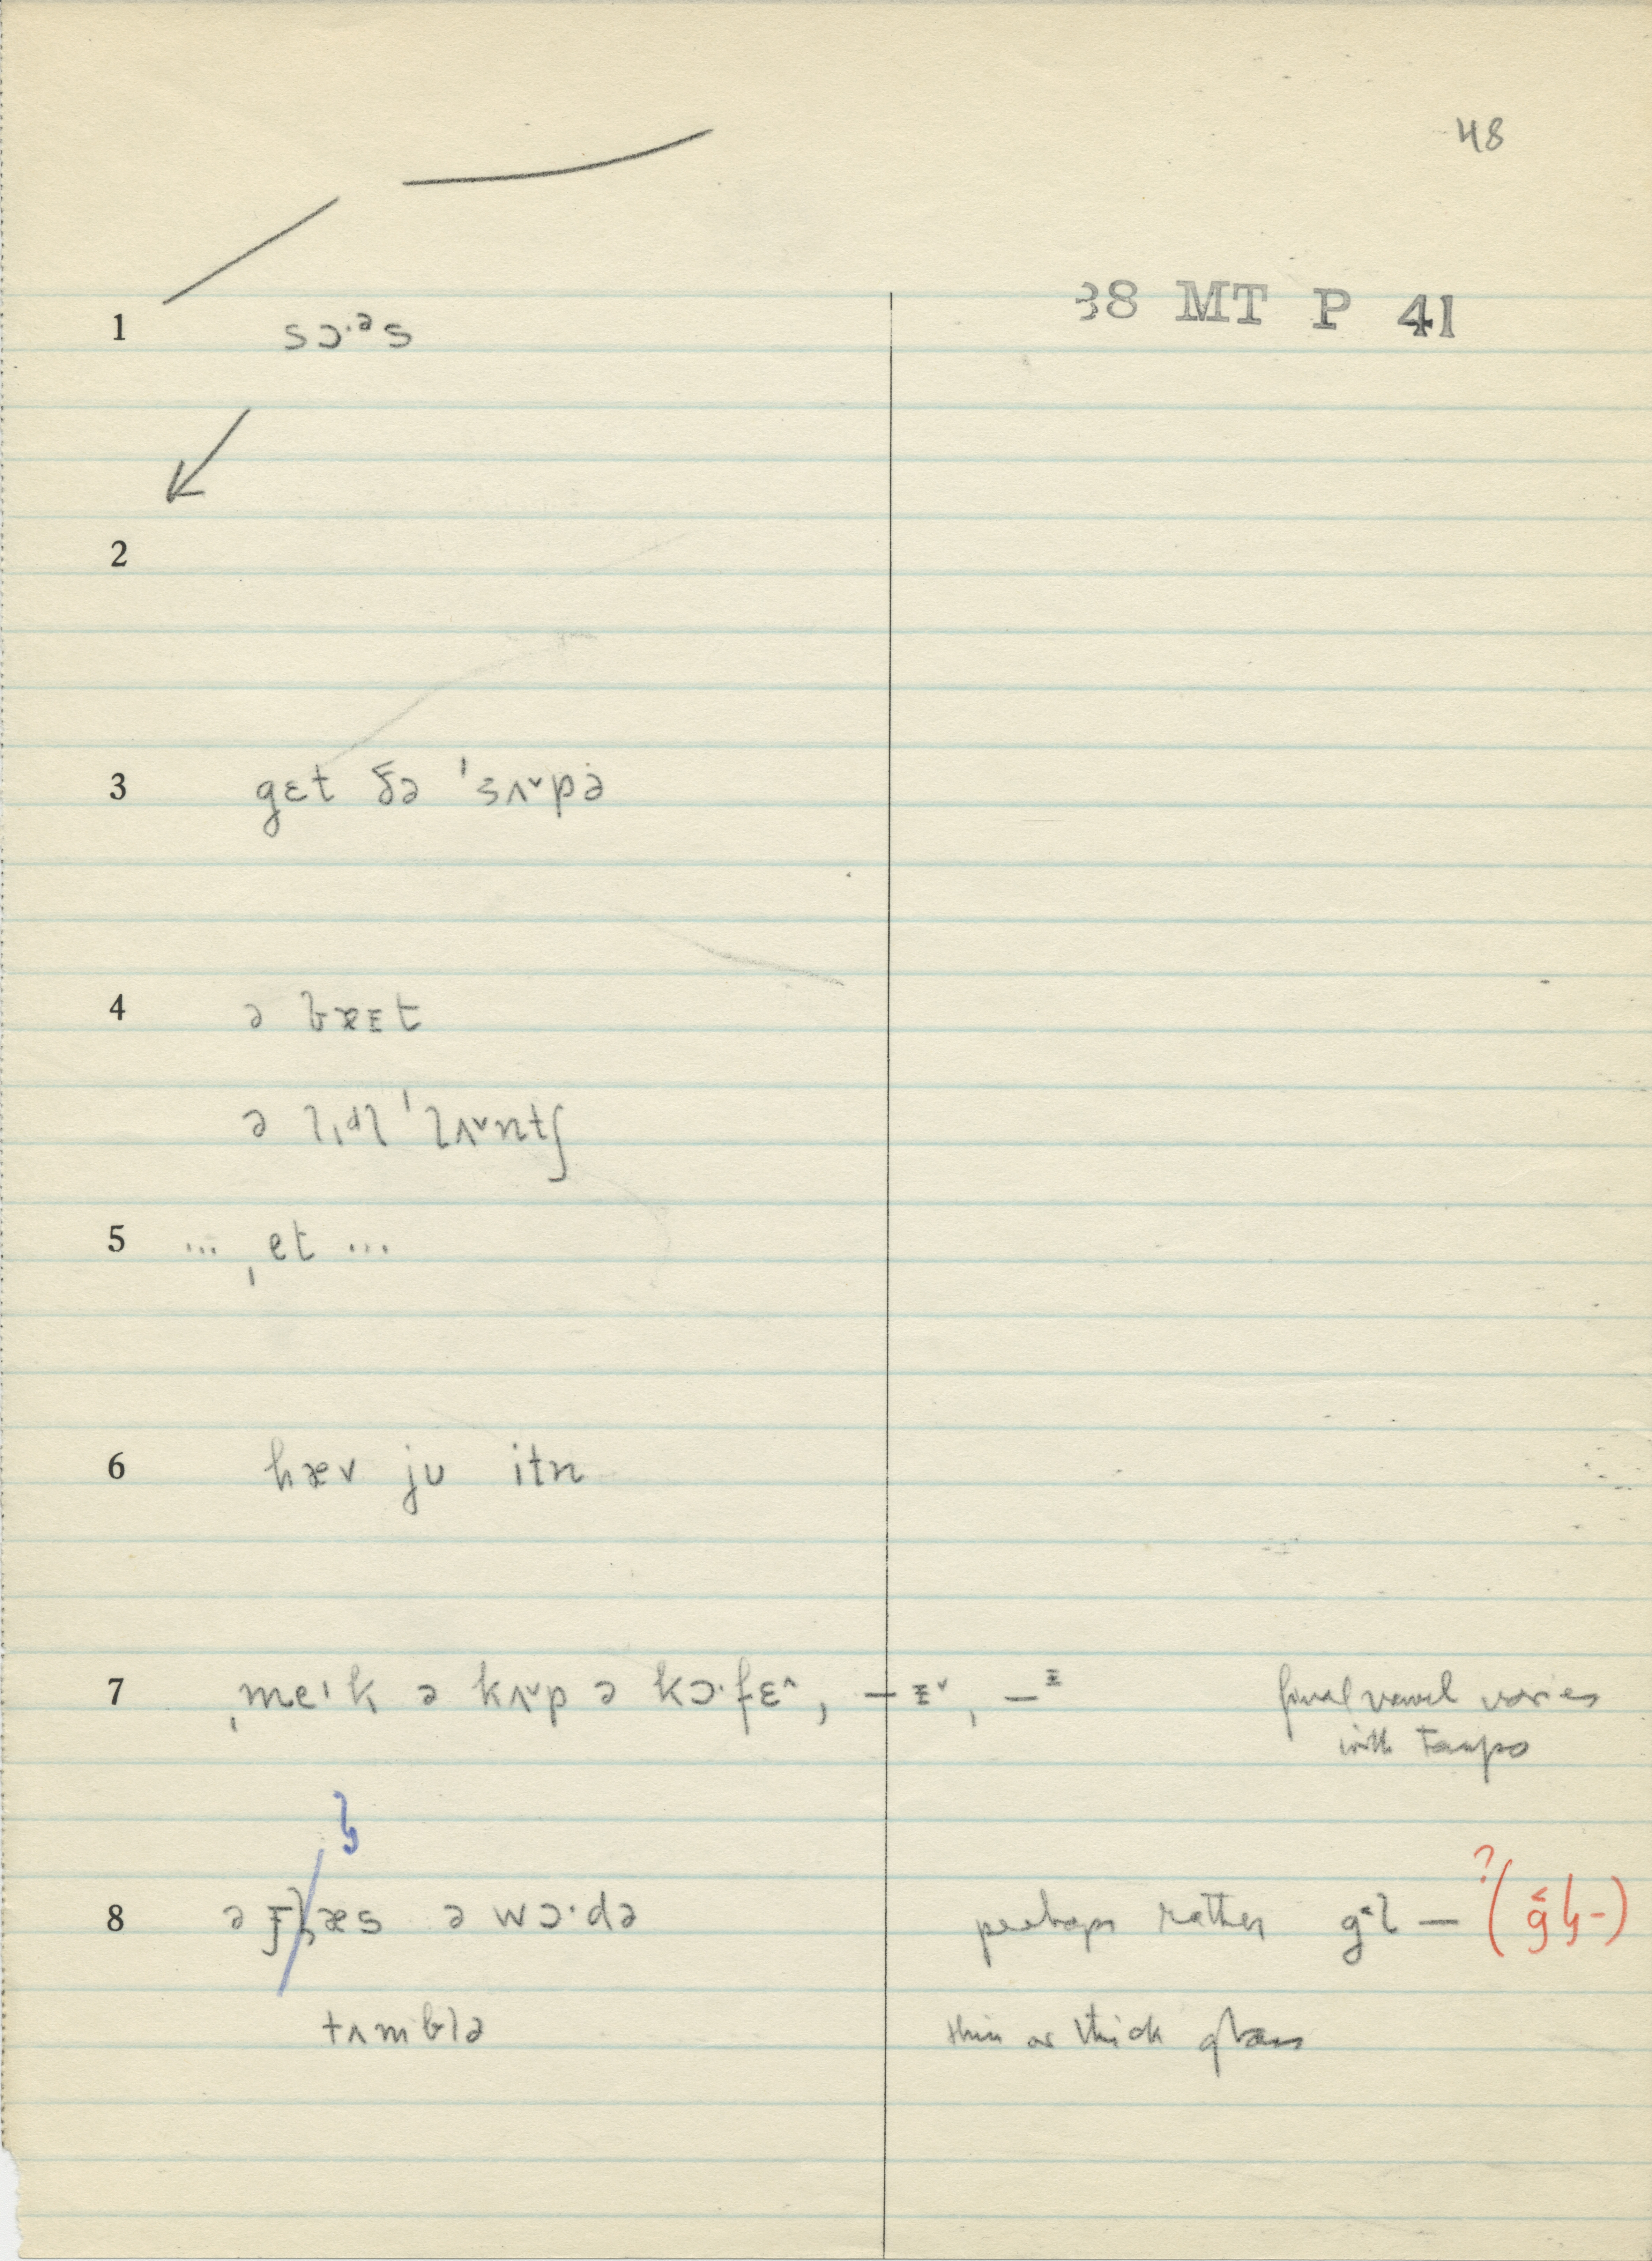 48
38 MT P 41
1 sɔ·ᵊs
2
3 gɛt ðə ˈsʌ˅pə
4 ə bæᴇt
ə lɪdl ˈlʌ˅ntʃ
5 ... ˌet ...
6 hæv ju itn
7 ˌmeᶦk ə kʌ˅p ə kɔ·fɛ˄, –ᵻ˅, – final vowel varies
with tempo
8 ə æs ə wɔ·də perhaps rather g˂l – ?(g˂ɫ-)
tʌmblə thin or thick glass